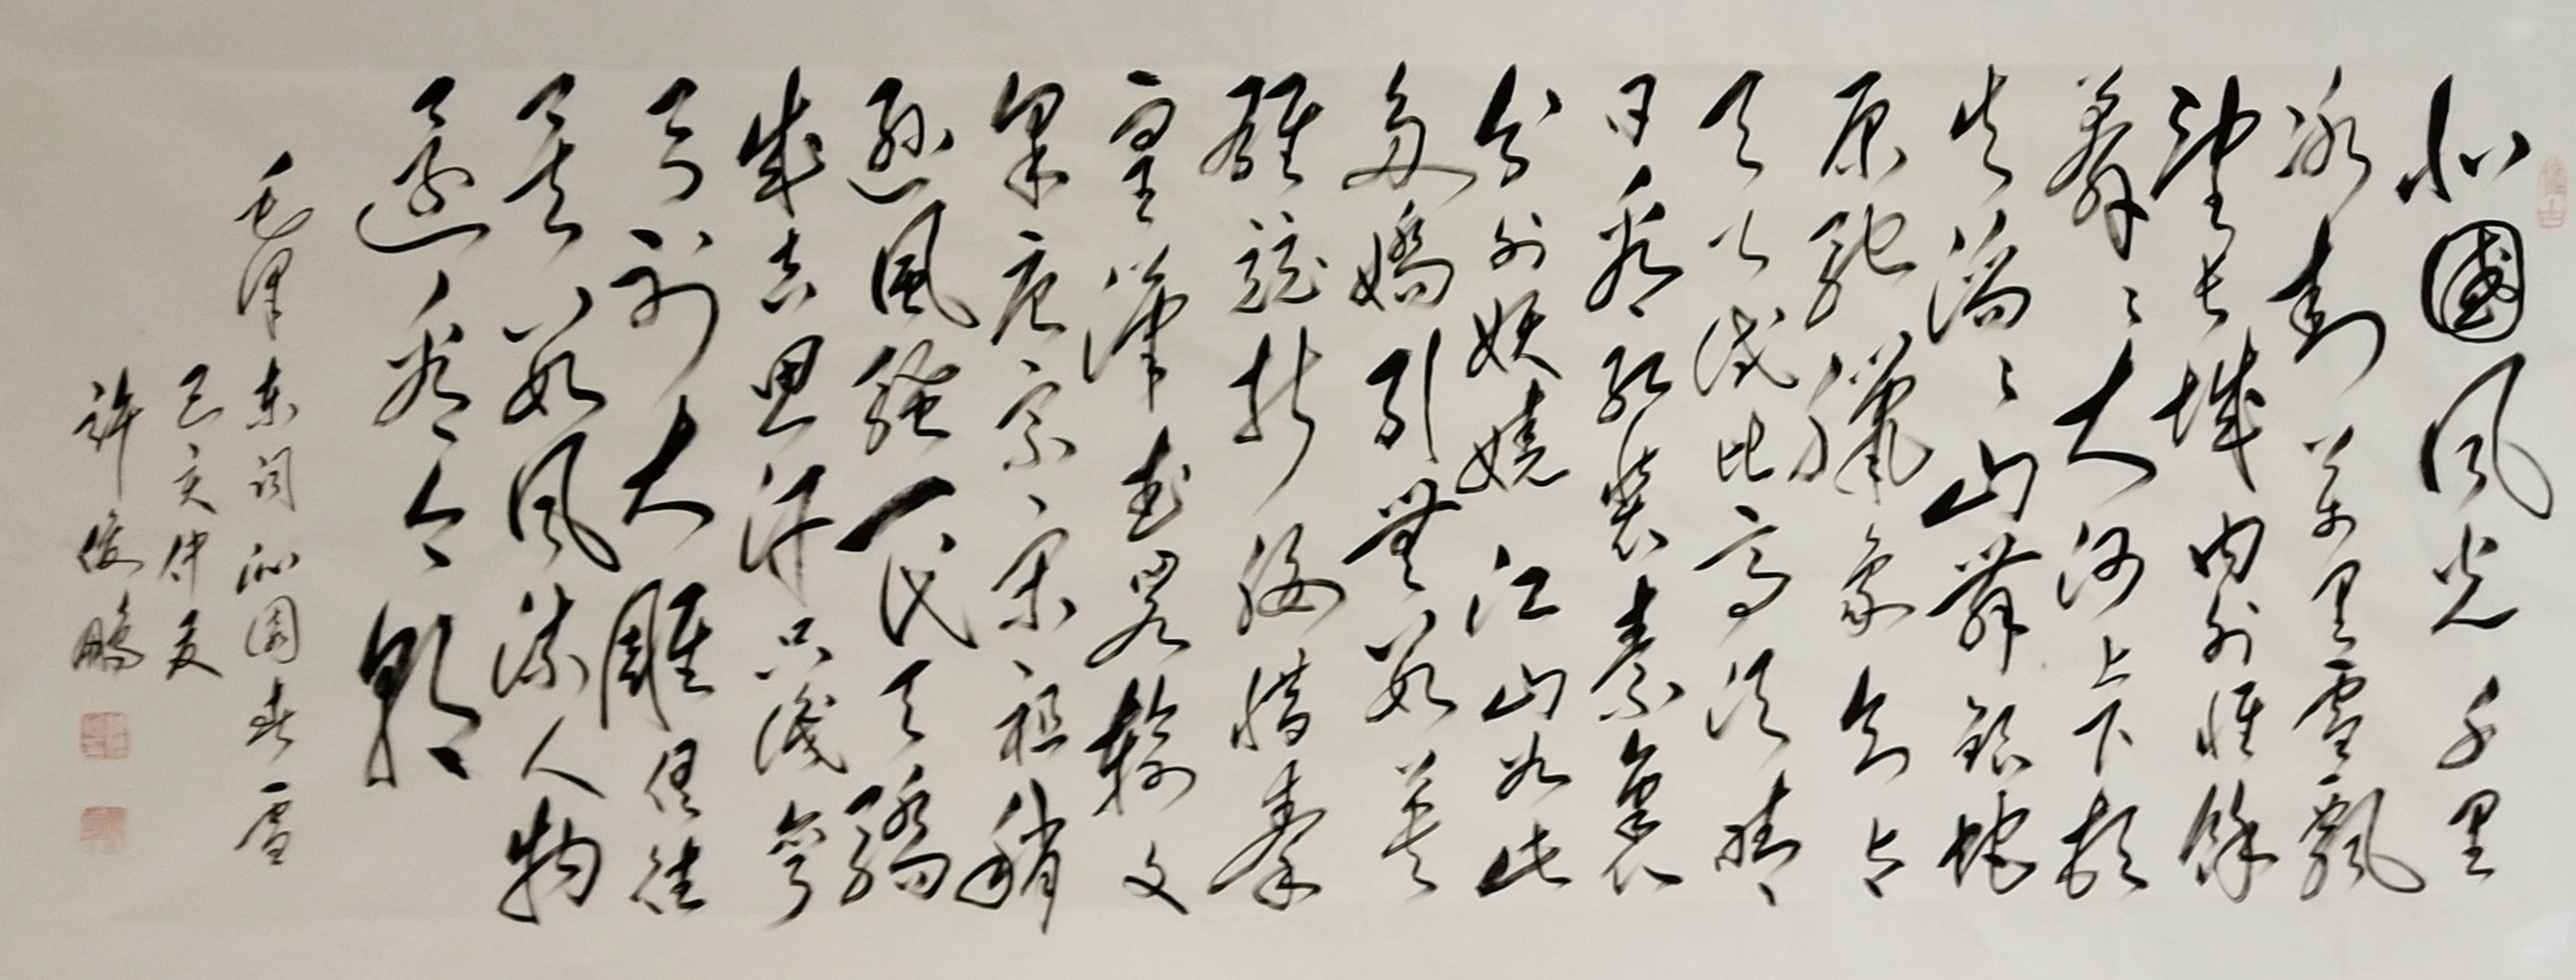 北國风光千里
冰封万里雪飘
望长城内外惟馀
莽〻大河上下顿
失滔〻山舞银蛇
原驰臘象欲与
天公试比高须晴
日看红装素裹
分外妖嬈江山如此
多嬌引無数英
雄競折腰惜秦
皇漢武略输文
采唐宗宋祖稍
逊风骚一代天驕
成吉思汗只识弯
弓射大雕俱往
矣数风流人物
还看今朝
毛泽东词沁园春雪
己亥仲夏
许俊鹏